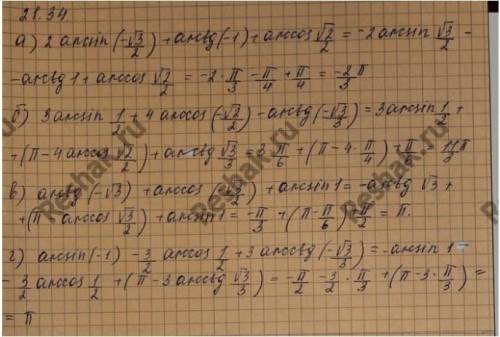 21.34
а) 2 arcsin (-√3/2) + arctg (-1) + arccos √2/2 = -2 arcsin √3/2 -
- arctg 1 + arccos √2/2 = -2 · π/3 - π/4 + π/4 = -2/3 π
б) 3 arcsin 1/2 + 4 arccos (-√2/2) - arctg (-√3/3) = 3 arcsin 1/2 +
+ (π - 4 arccos √2/2) + arctg √3/3 = 3 π/6 + (π - 4 · π/4) + π/6 =
в) arctg (-√3) + arccos (-√3/2) + arcsin 1 = - arctg √3 +
+ (π - arccos √3/2) + arcsin 1 = -π/3 + (π - π/6) + π/2 = π.
г) arcsin (-1) - 3/2 arccos 1/2 + 3 arcctg (-√3/3) = - arcsin 1 -
- 3/2 arccos 1/2 + (π - 3 arcctg √3/3) = -π/2 - 3/2 · π/3 + (π - 3 · π/3) =
= π
Reshak.ru